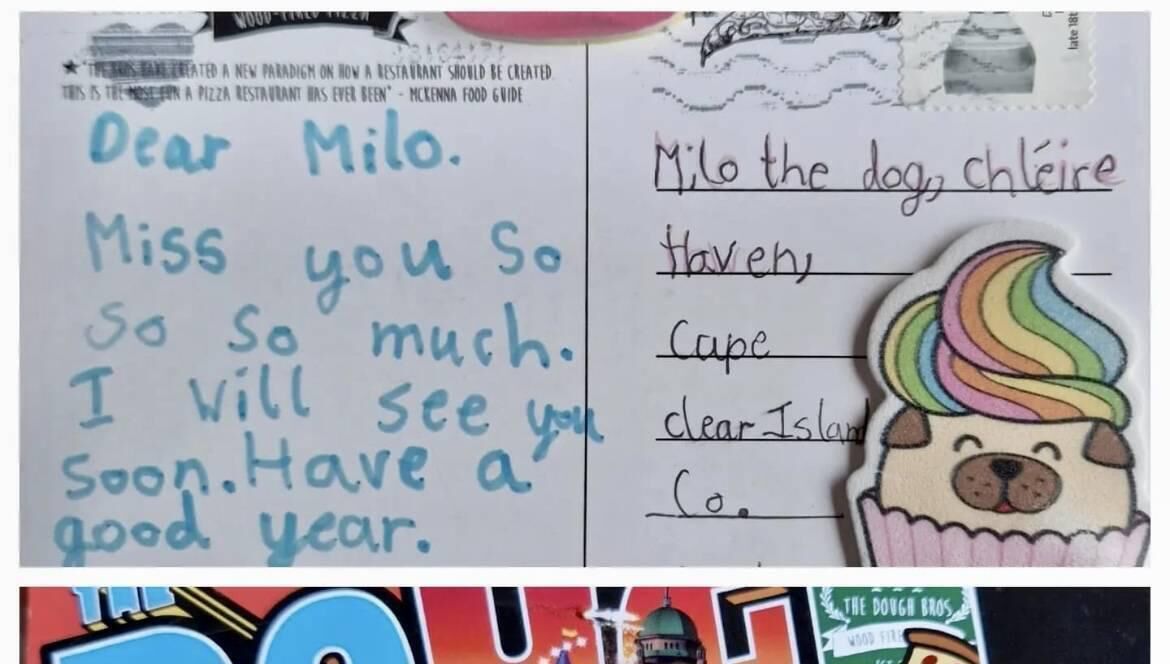 WOOD-FIRED PIZZA
late 18t
★ "THE BROS HAVE CREATED A NEW PARADIGM ON HOW A RESTAURANT SHOULD BE CREATED.
THIS IS THE MOST FUN A PIZZA RESTAURANT HAS EVER BEEN" - MCKENNA FOOD GUIDE
Dear Milo.
Miss you So
So So much.
I will see you
soon. Have a
good year.
Milo the dog, chléire
Haven,
Cape
clear Islan
Co.
THE
THE DOUGH BROS
WOOD FIRE